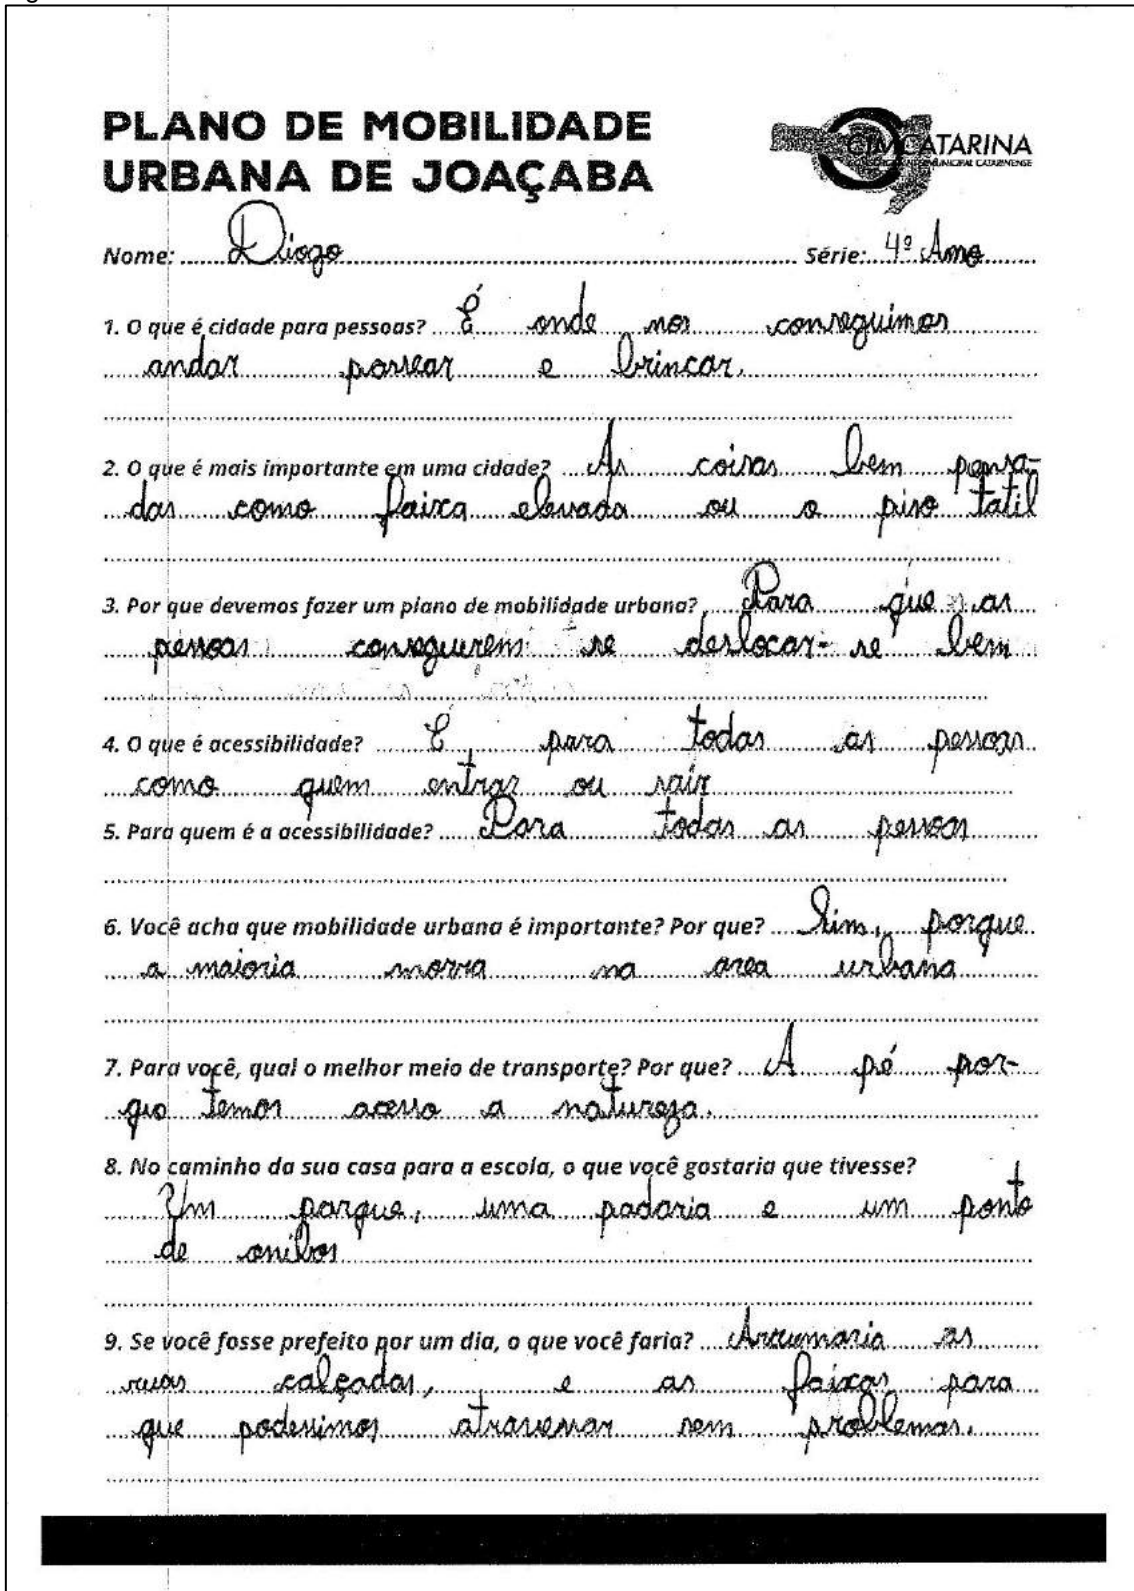 PLANO DE MOBILIDADE
URBANA DE JOAÇABA
CIMCATARINA
CONSÓRCIO INTERMUNICIPAL CATARINENSE
Nome: Diogo Série: 4º Ano
1. O que é cidade para pessoas? É onde nos conseguimos
andar passear e brincar.
2. O que é mais importante em uma cidade? As coisas bem pensa-
das como faixa elevada ou o piso tatil
3. Por que devemos fazer um plano de mobilidade urbana? Para que as
pessoas conseguerem se deslocar-se bem
4. O que é acessibilidade? É para todas as pessoas
como quem entrar ou sair
5. Para quem é a acessibilidade? Para todas as pessoas
6. Você acha que mobilidade urbana é importante? Por que? Sim, porque
a maioria morra na area urbana
7. Para você, qual o melhor meio de transporte? Por que? A pé por-
temos acesso a natureza.
8. No caminho da sua casa para a escola, o que você gostaria que tivesse?
Um parque, uma padaria e um ponto
de onibos
9. Se você fosse prefeito por um dia, o que você faria? as
ruas calçadas, e as faixas para
que podessimos atravessar sem problemas.